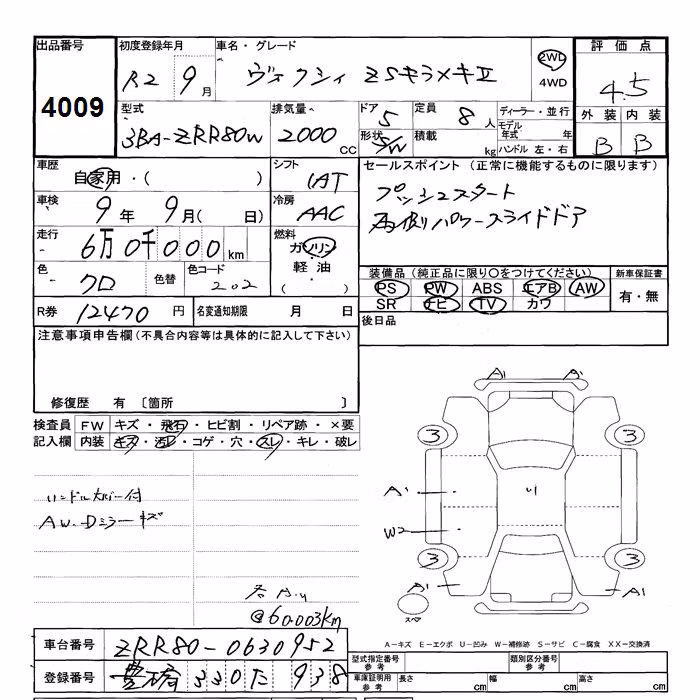 出品番号 初度登録年月 車名・グレード 評価点
4009 R2 9月 ヴォクシィ ZSキラメキⅡ 2WD 4WD 4.5
型式 排気量 ドア 定員 ディーラー・並行 外装 内装
3BA-ZRR80W 2000cc 5 8人 モデル年式 年 B B
形状 S/W 積載 kg ハンドル 左・右
車歴 自家用・( ) シフト IAT セールスポイント (正常に機能するものに限ります)
車検 9年 9月( 日) 冷房 AAC プッシュスタート
走行 6万0千000km 燃料 ガソリン 両側パワースライドドア
軽油
( )
色 クロ 色替 色コード 202
装備品 (純正品に限り○をつけてください) 新車保証書
PS PW ABS エアB AW 有・無
SR ナビ TV カワ
R券 12470円 名変通知期限 月 日 後日品
注意事項申告欄 (不具合内容等は具体的に記入して下さい)
修復歴 有 〔箇所 〕
検査員 FW キズ・飛石・ヒビ割・リペア跡・×要
記入欄 内装 キズ・汚レ・コゲ・穴・スレ・キレ・破レ
ハンドルカバー付
AW.Dミラーキズ
@60.003Km
A1 A1
3 3
A1 W2
3 3
A1 A1
スペア
A－キズ E－エクボ U－凹み W－補修跡 S－サビ C－腐食 XX－交換済
車台番号 ZRR80-0630952
登録番号 豊橋 330 た 938
型式指定番号 参考 類別区分番号 参考
車庫証明用 参考 長さ cm 幅 cm 高さ cm